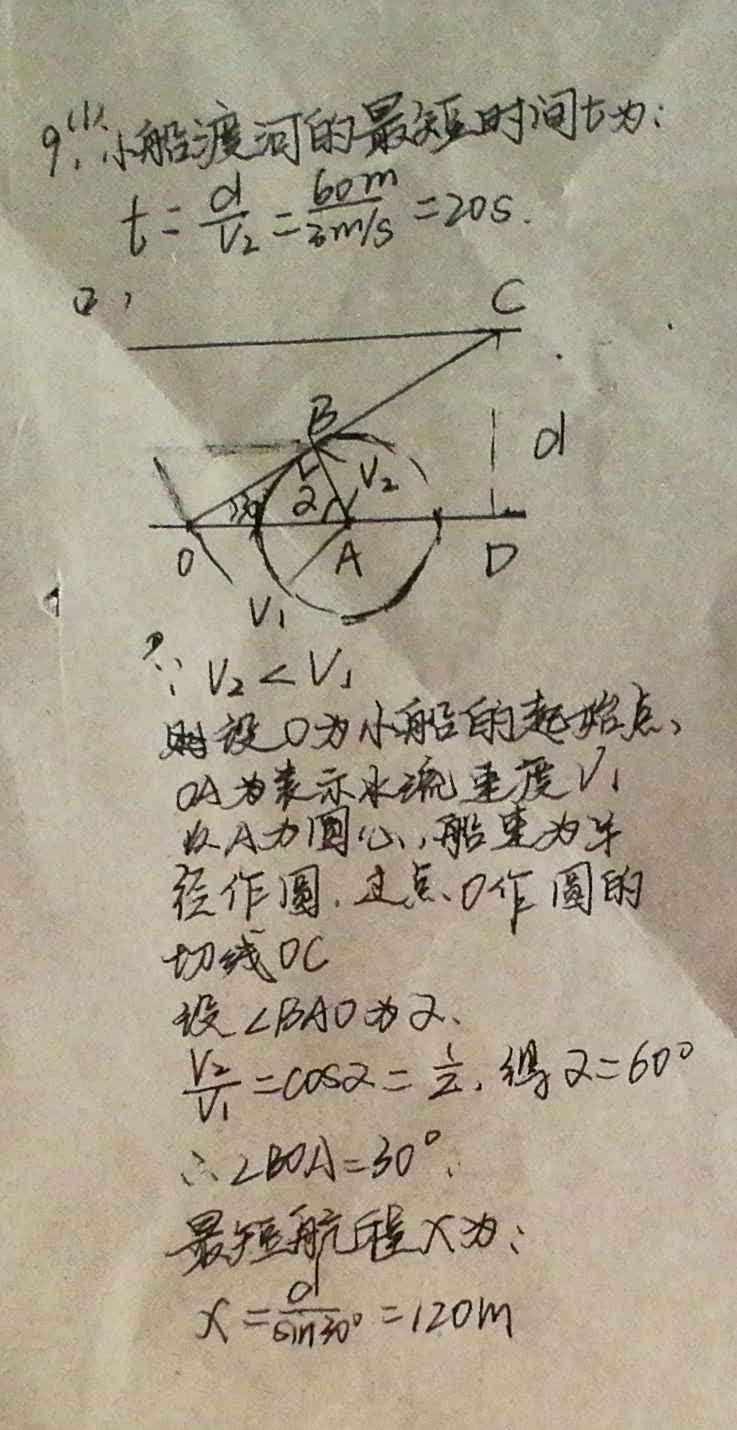 9.(1)、小船渡河的最短时间t为:
t=d/V₂=60m/3m/s=20s.
2)
C
B
d
V₂
30°
α
O
A
D
V₁
∵V₂<V₁
则设O为小船的起始点、
OA为表示水流速度V₁
以A为圆心,船速为半
径作圆.过点O作圆的
切线OC
设∠BAO为α、
V₂/V₁=cosα=1/2,得α=60°
∴∠BOA=30°.
最短航程x为:
x=d/sin30°=120m